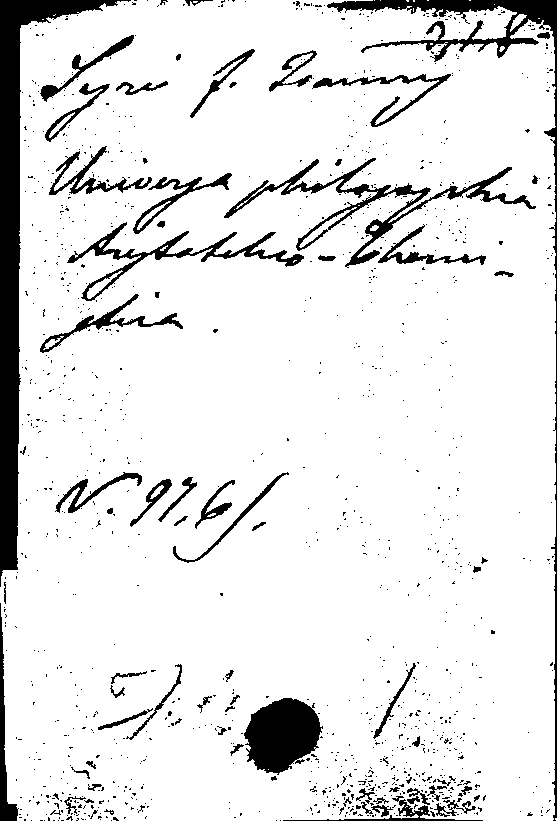 Syri f. Joannis
Universa philosophia
Aristotelico-Thomi-
stica.
V. 97. 6/.